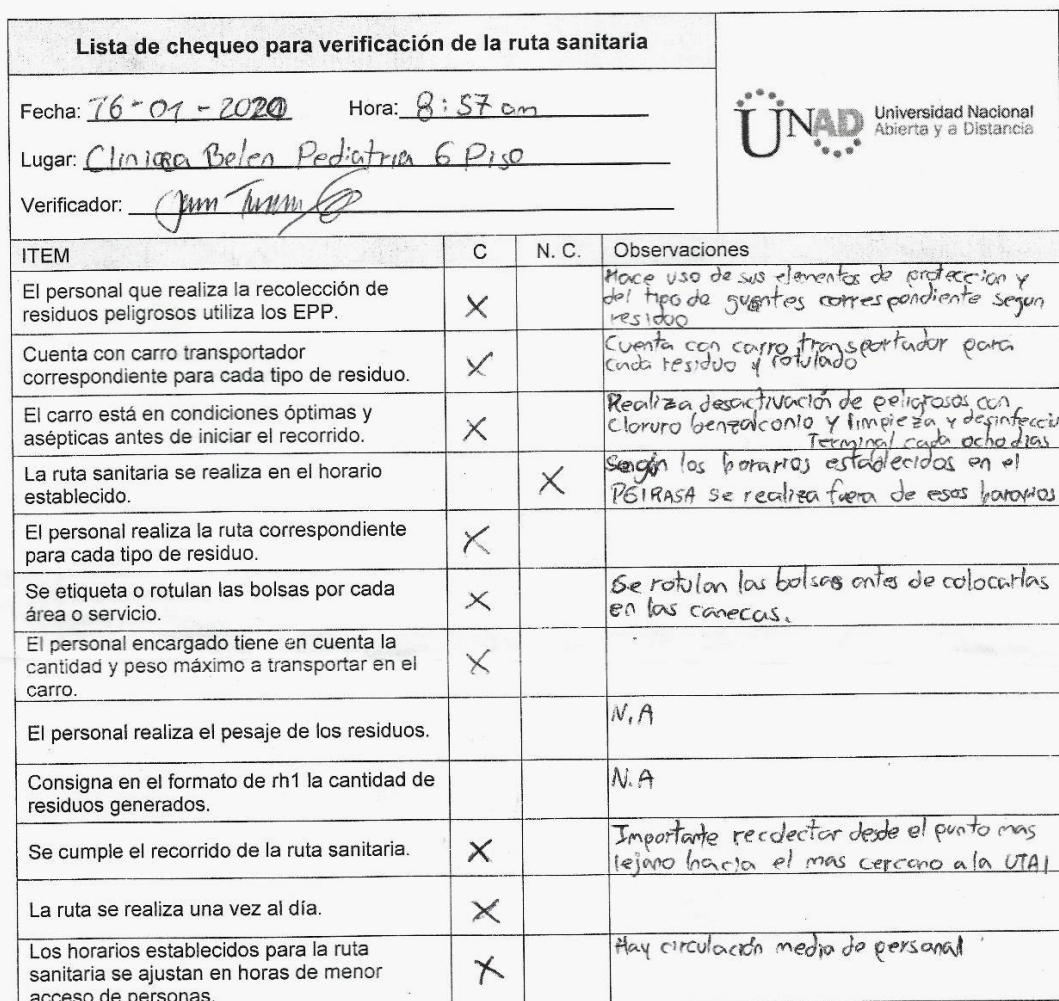 Lista de chequeo para verificación de la ruta sanitaria
Fecha: 16-01-2020 Hora: 8:57 am
Lugar: Clinica Belen Pediatria 6 Piso
Verificador:
UNAD Universidad Nacional
Abierta y a Distancia
ITEM C N. C. Observaciones
El personal que realiza la recolección de
residuos peligrosos utiliza los EPP.
X
Hace uso de sus elementos de proteccion y
del tipo de guantes correspondiente segun
residuo
Cuenta con carro transportador
correspondiente para cada tipo de residuo.
X
Cuenta con carro transportador para
cada residuo y rotulado
El carro está en condiciones óptimas y
asépticas antes de iniciar el recorrido.
X
Realiza desactivación de peligrosos con
Cloruro benzalconio y limpieza y desinfecció
Terminal cada ocho dias
La ruta sanitaria se realiza en el horario
establecido.
X
Según los horarios establecidos en el
PGIRASA se realiza fuera de esos horarios
El personal realiza la ruta correspondiente
para cada tipo de residuo.
X
Se etiqueta o rotulan las bolsas por cada
área o servicio.
X
Se rotulan las bolsas antes de colocarlas
en las canecas.
El personal encargado tiene en cuenta la
cantidad y peso máximo a transportar en el
carro.
X
El personal realiza el pesaje de los residuos.
N.A
Consigna en el formato de rh1 la cantidad de
residuos generados.
N.A
Se cumple el recorrido de la ruta sanitaria.
X
Importante recolectar desde el punto mas
lejano hacia el mas cercano a la UTAI
La ruta se realiza una vez al día.
X
Los horarios establecidos para la ruta
sanitaria se ajustan en horas de menor
acceso de personas.
X
Hay circulación media de personal